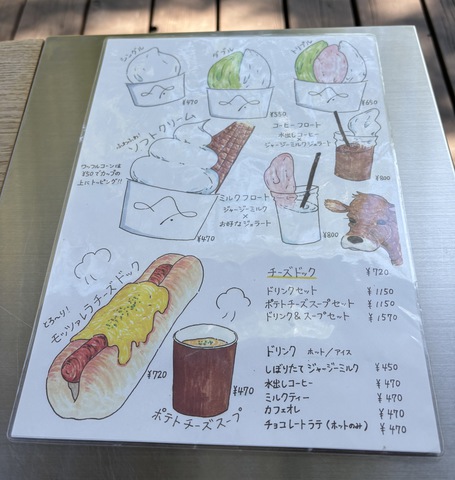 シングル
ダブル
トリプル
¥470
¥550
¥650
ふわふわ
ソフトクリーム
ワッフルコーンは
¥50でカップの
上にトッピング!!
¥470
コーヒーフロート
水出しコーヒー
×
ジャージーミルクジェラート
¥800
ミルクフロート
ジャージーミルク
×
お好なジェラート
¥800
とろ〜り!
モッツァレラチーズドック
¥720
¥470
ポテトチーズスープ
チーズドック ¥720
ドリンクセット ¥1150
ポテトチーズスープセット ¥1150
ドリンク&スープセット ¥1570
ドリンク ホット/アイス
しぼりたて ジャージーミルク ¥450
水出しコーヒー ¥470
ミルクティー ¥470
カフェオレ ¥470
チョコレートラテ(ホットのみ) ¥470